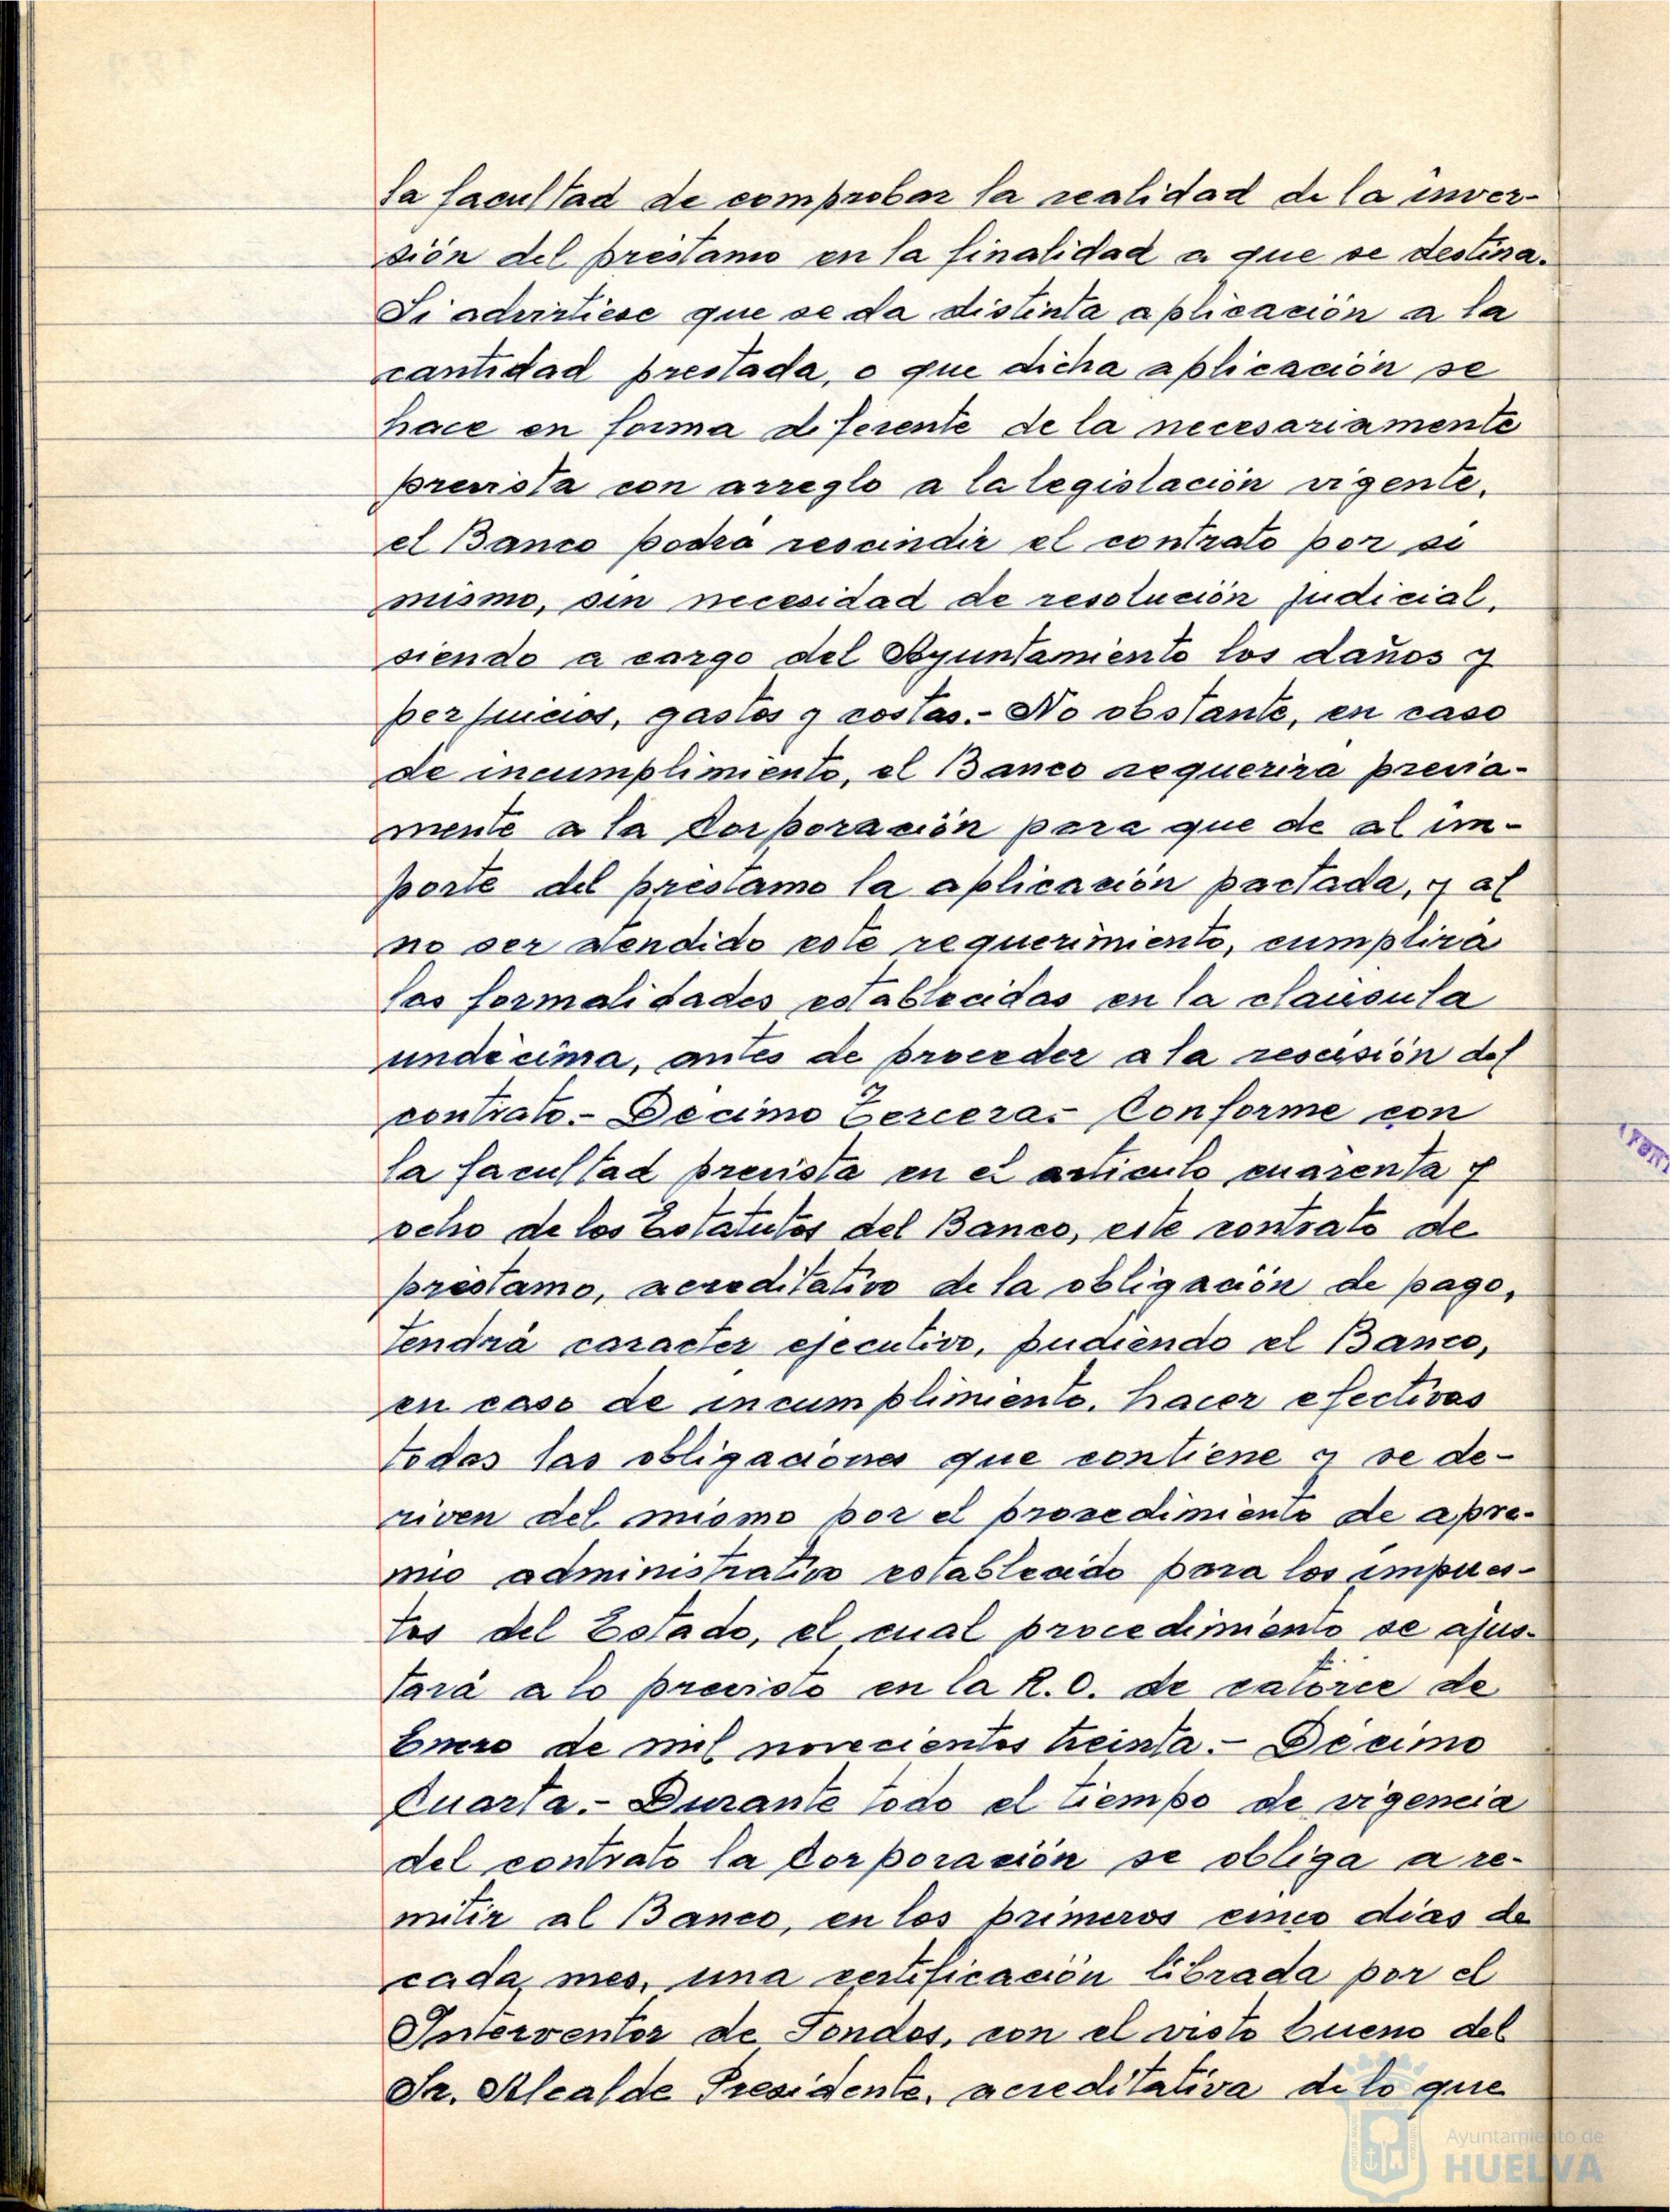 la facultad de comprobar la realidad de la inver-
sión del préstamo en la finalidad a que se destina.
Si advirtiese que se da distinta aplicación a la
cantidad prestada, o que dicha aplicación se
hace en forma diferente de la necesariamente
prevista con arreglo a la legislación vigente,
el Banco podrá rescindir el contrato por si
mismo, sin necesidad de resolución judicial,
siendo a cargo del Ayuntamiento los daños y
perjuicios, gastos y costas.- No obstante, en caso
de incumplimiento, el Banco requerira previa-
mente a la Corporación para que de al im-
porte del préstamo la aplicación pactada, y al
no ser atendido este requerimiento, cumplirá
las formalidades establecidas en la claúsula
undécima, antes de proceder a la rescisión del
contrato.- Décimo Tercera.- Conforme con
la facultad prevista en el articulo cuarenta y
ocho de los Estatutos del Banco, este contrato de
préstamo, acreditativo de la obligación de pago,
tendrá caracter ejecutivo, pudiendo el Banco,
en caso de incumplimiento, hacer efectivas
todas las obligaciones que contiene y se de-
riven del mismo por el procedimiento de apre-
mio administrativo establecido para los impues-
tos del Estado, el cual procedimiento se ajus-
tará a lo previsto en la R.O. de catorce de
Enero de mil novecientos treinta.- Décimo
Cuarta.- Durante todo el tiempo de vigencia
del contrato la Corporación se obliga a re-
mitir al Banco, en los primeros cinco días de
cada mes, una certificación librada por el
Interventor de Fondos, con el visto bueno del
Sr. Alcalde Presidente, acreditativa de lo que
Ayuntamiento de
HUELVA